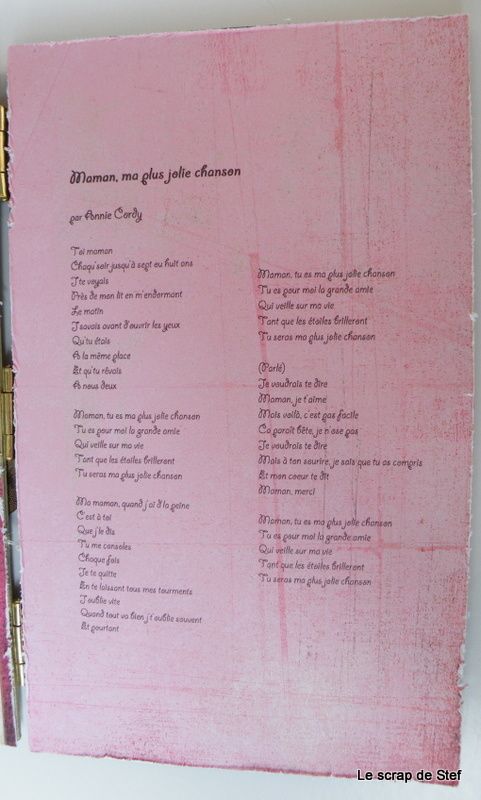 Maman, ma plus jolie chanson
par Annie Cordy
Toi maman
Chaqu'soir jusqu'à sept ou huit ans
J'te voyais
Près de mon lit en m'endormant
Le matin
J'savais avant d'ouvrir les yeux
Qu'tu étais
A la même place
Et qu'tu rêvais
A nous deux
Maman, tu es ma plus jolie chanson
Tu es pour moi la grande amie
Qui veille sur ma vie
Tant que les étoiles brilleront
Tu seras ma plus jolie chanson
Ma maman, quand j'ai d'la peine
C'est à toi
Que j'le dis
Tu me consoles
Chaque fois
Je te quitte
En te laissant tous mes tourments
J'oublie vite
Quand tout va bien j't'oublie souvent
Et pourtant
Maman, tu es ma plus jolie chanson
Tu es pour moi la grande amie
Qui veille sur ma vie
Tant que les étoiles brilleront
Tu seras ma plus jolie chanson
(Parlé)
Je voudrais te dire
Maman, je t'aime
Mais voilà, c'est pas facile
Ca paraît bête, je n'ose pas
Je voudrais te dire
Mais à ton sourire, je sais que tu as compris
Et mon coeur te dit
Maman, merci
Maman, tu es ma plus jolie chanson
Tu es pour moi la grande amie
Qui veille sur ma vie
Tant que les étoiles brilleront
Tu seras ma plus jolie chanson
Le scrap de Stef